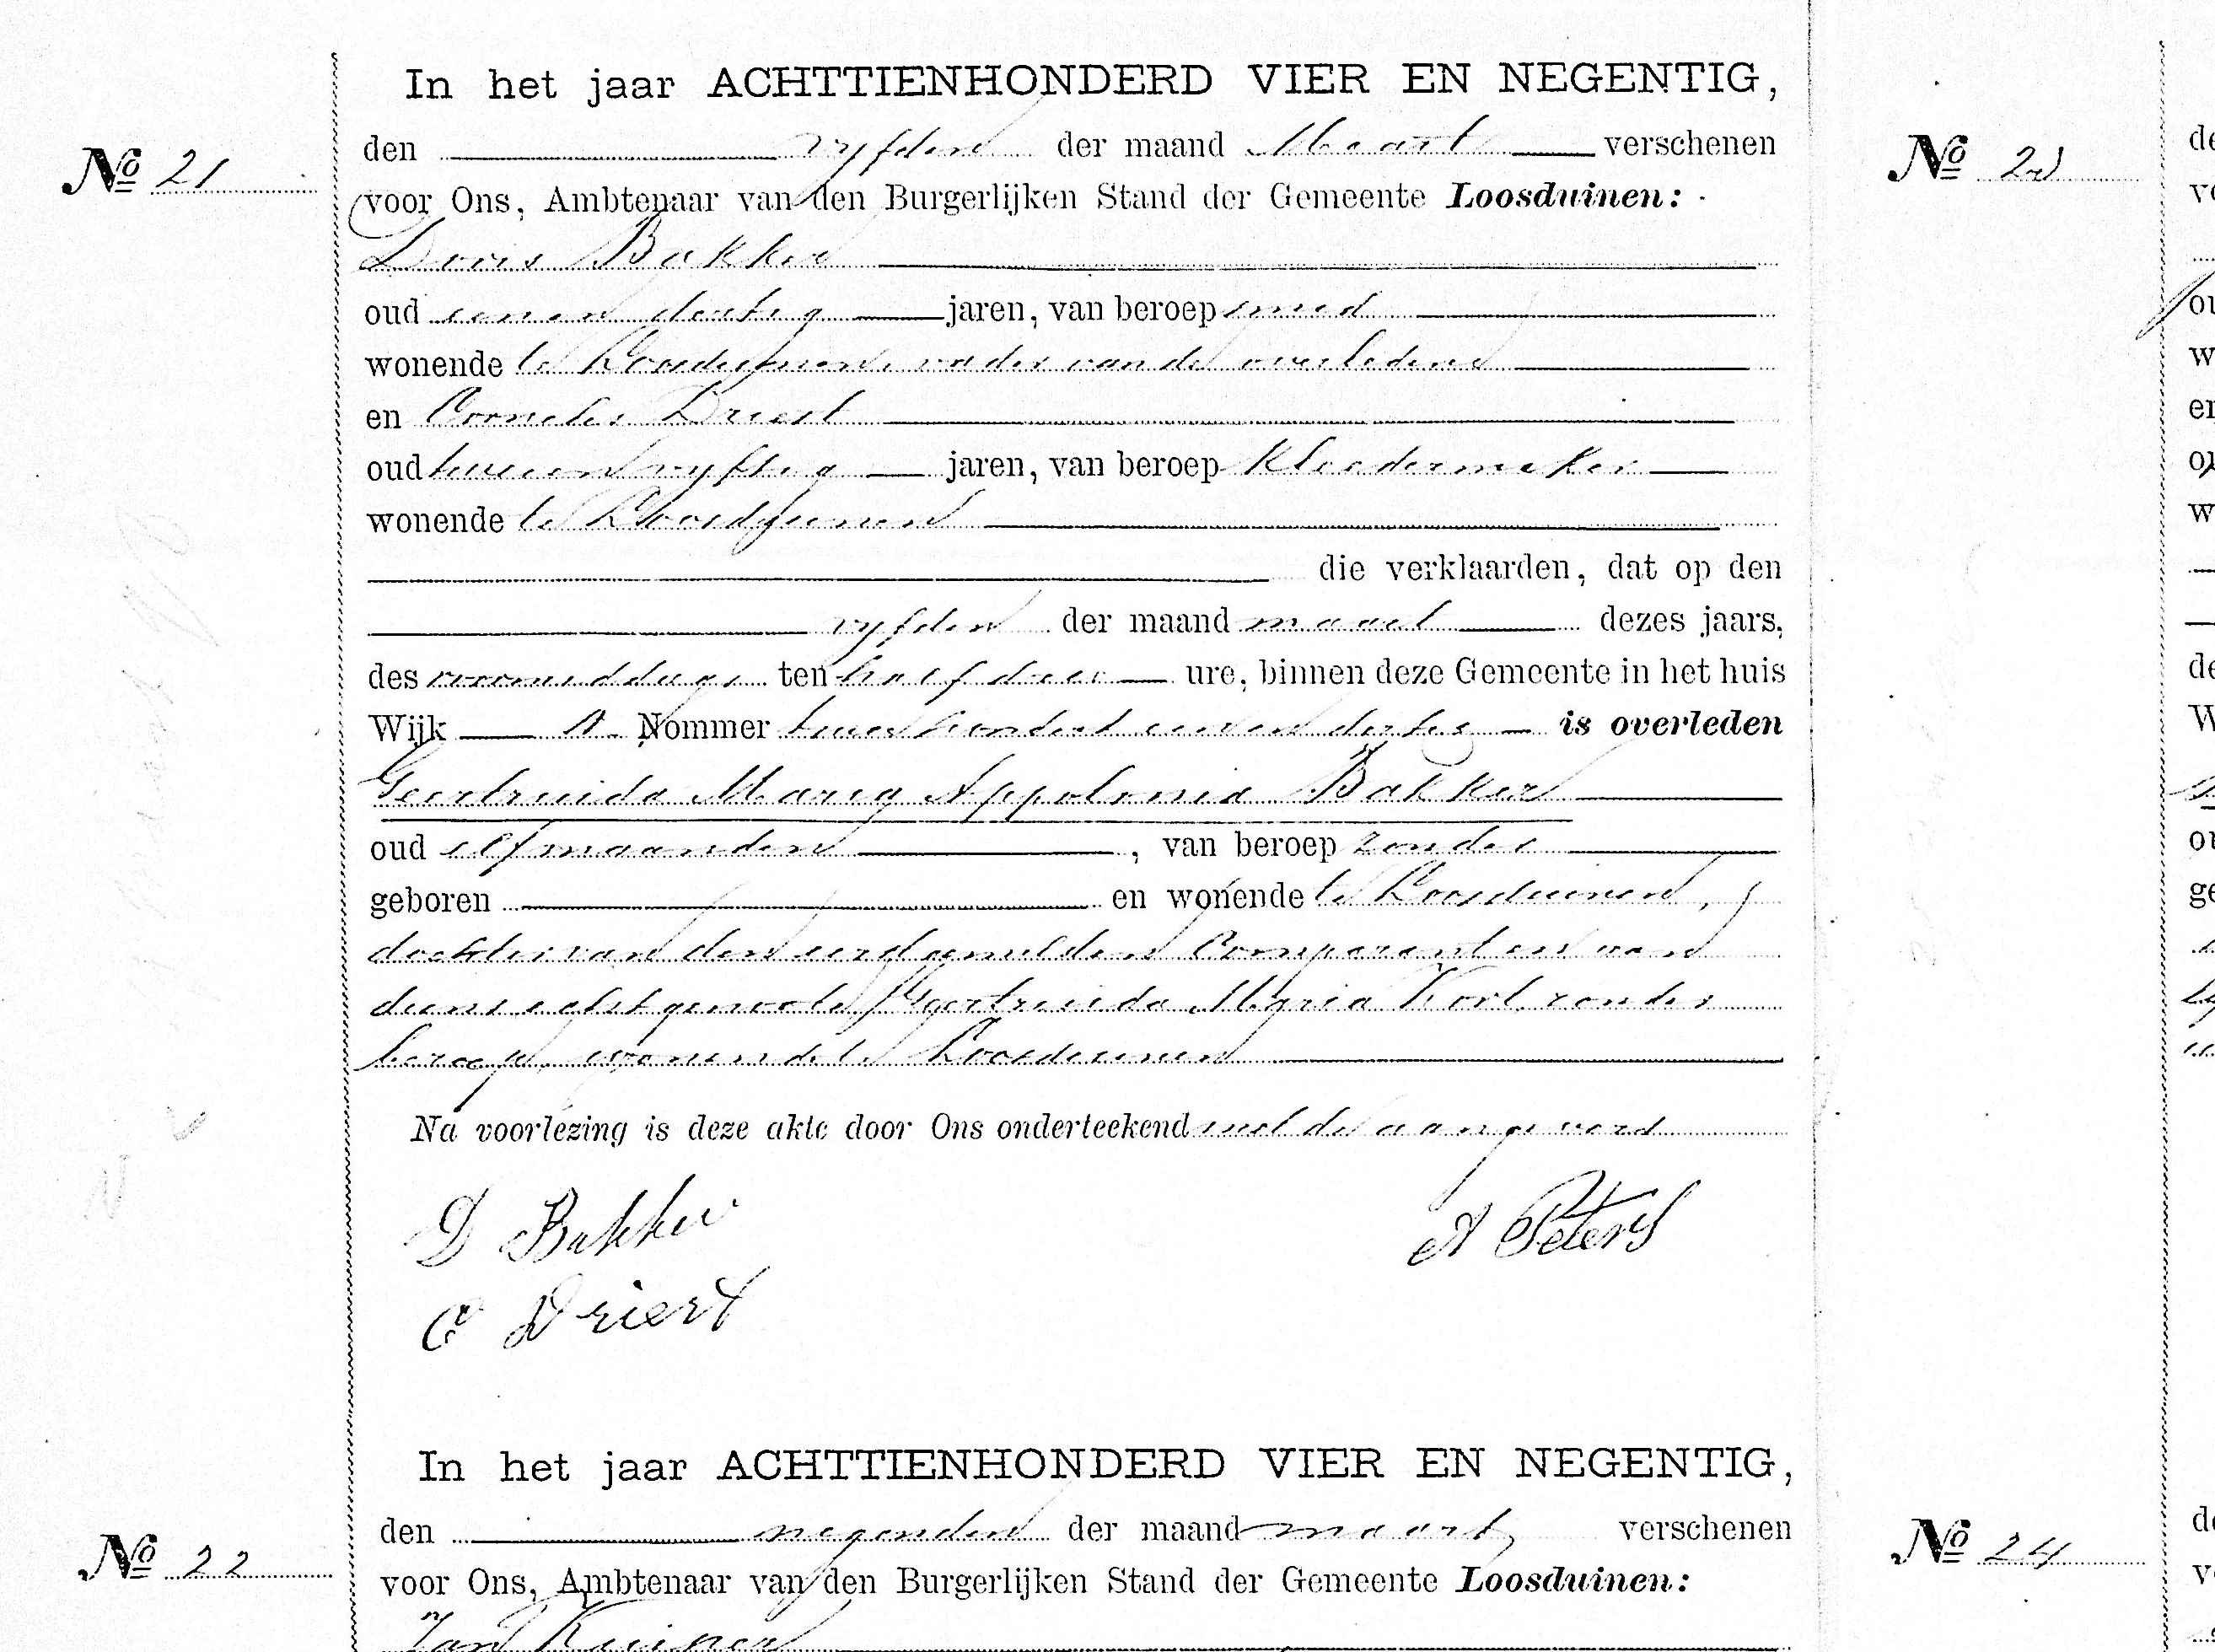 In het jaar ACHTTIENHONDERD VIER EN NEGENTIG,
den vyfden der maand Maart verschenen
No 21
voor Ons, Ambtenaar van den Burgerlijken Stand der Gemeente Loosduinen:
Doris Bakker
oud eenen dertig jaren, van beroep smid
wonende te Loosduinen, vader van de overledene
en Cornelis Driest
oud tweeen vyftig jaren, van beroep Kleedermaker
wonende te Loosduinen
die verklaarden, dat op den
vyfden der maand maart dezes jaars,
des voormiddags ten half drie ure, binnen deze Gemeente in het huis
Wijk A. Nommer twee honderd eenen dertig is overleden
Geertruida Maria Appolonia Bakker
oud elf maanden, van beroep zonder
geboren en wonende te Loosduinen,
dochter van den eerstgemelden Comparant en van
diens echtgenoote Geertruida Maria Kort, zonder
beroep, wonende te Loosduinen
Na voorlezing is deze akte door Ons onderteekend met de aangevers
D Bakker
A Peters
C Driest
In het jaar ACHTTIENHONDERD VIER EN NEGENTIG,
den negenden der maand maart verschenen
No 22
voor Ons, Ambtenaar van den Burgerlijken Stand der Gemeente Loosduinen:
Jan
No 23
No 24